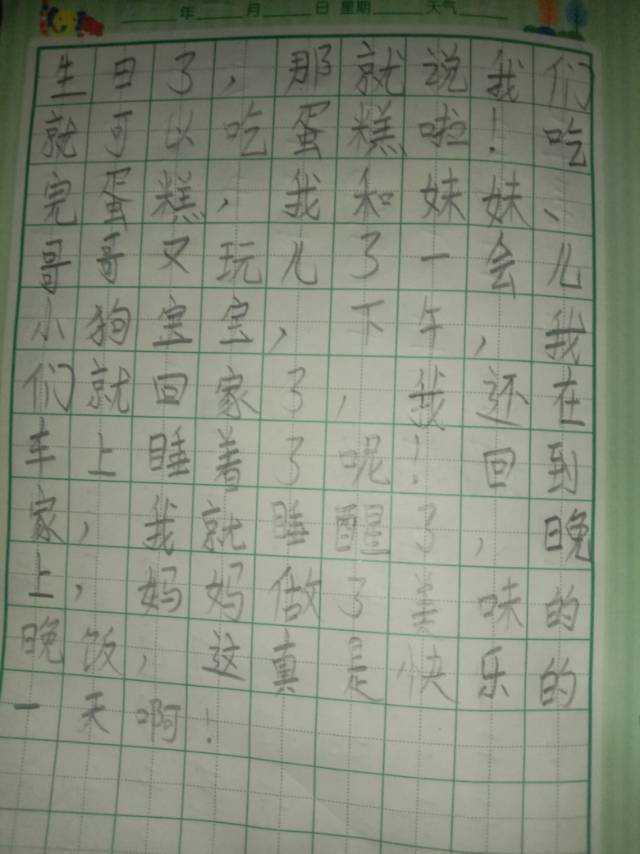 年 月 日 星期 天气
生日了，那就说我们
就可以吃蛋糕啦！吃
完蛋糕，我和妹妹、
哥哥又玩儿了一会儿
小狗宝宝，下午，我
们就回家了，我还在
车上睡着了呢！回到
家，我就睡醒了，晚
上，妈妈做了美味的
晚饭，这真是快乐的
一天啊！